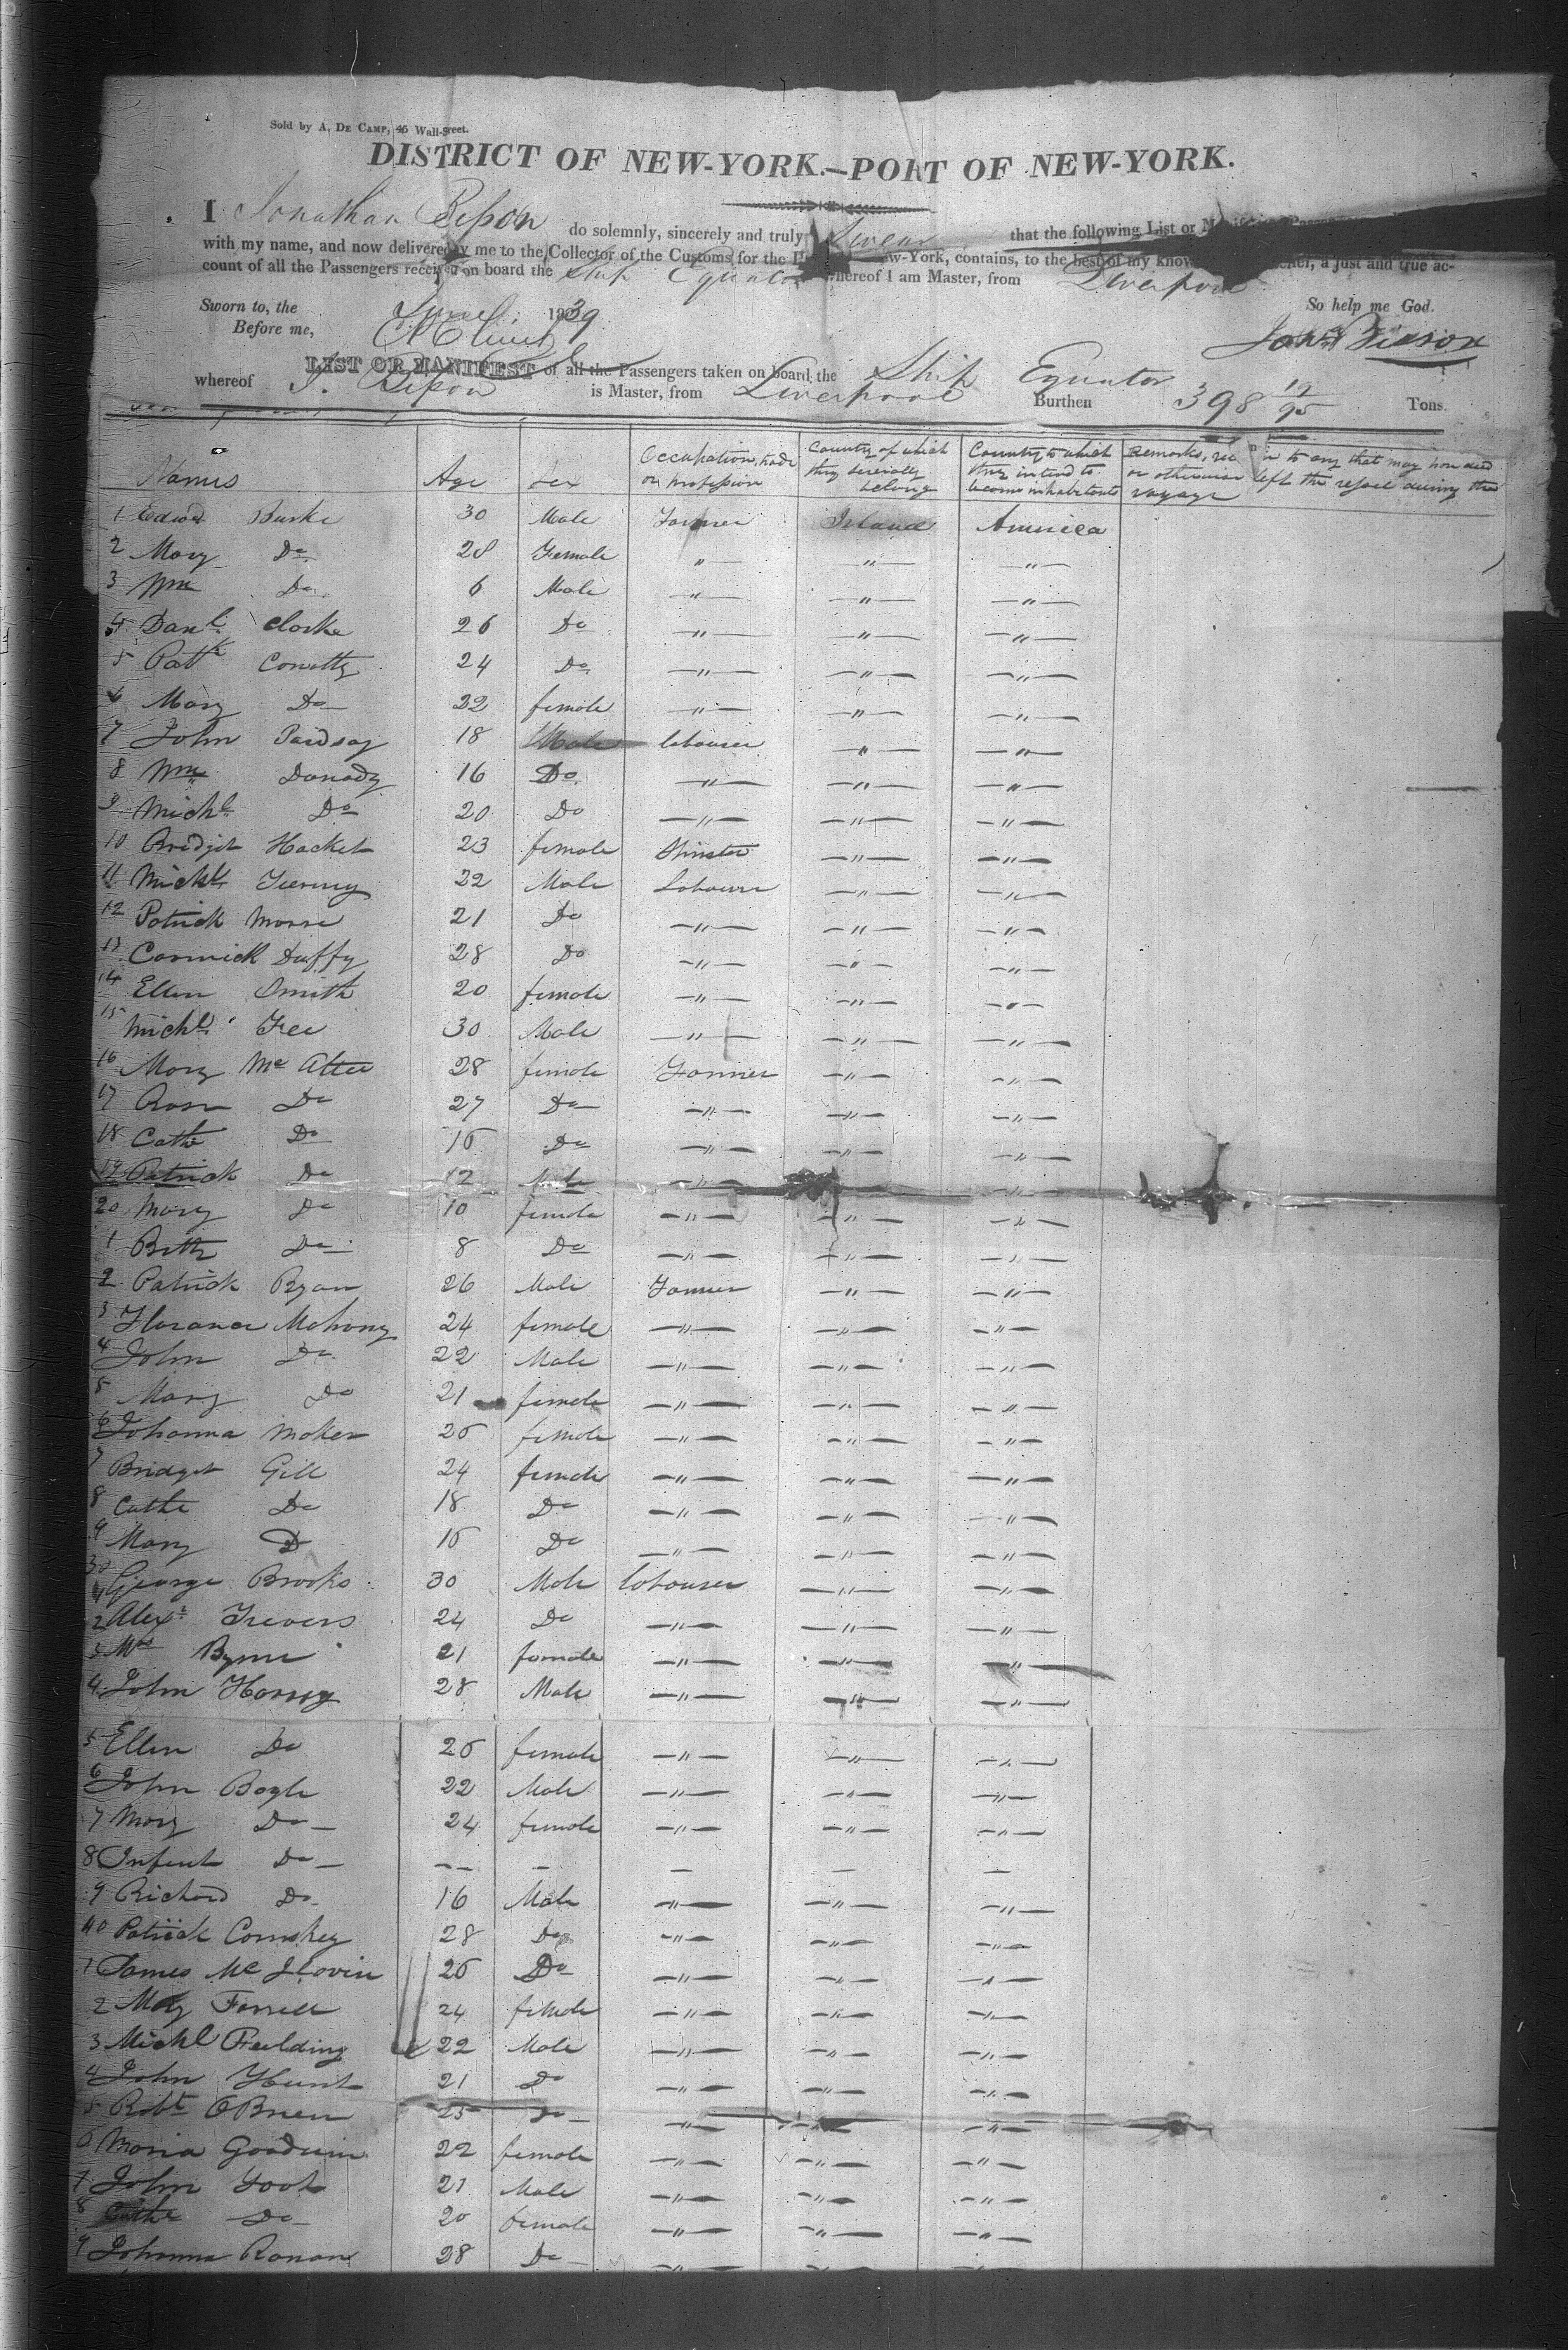 Sold by A. DE CAMP, 45 Wall-street.
DISTRICT OF NEW-YORK.—PORT OF NEW-YORK.
I Jonathan Bisson do solemnly, sincerely and truly Swear that the following List or
with my name, and now delivered by me to the Collector of the Customs for the New-York, contains, to the best of my a just and true ac-
count of all the Passengers received on board the Ship Equator whereof I am Master, from Liverpool
Sworn to, the June 1839 So help me God.
Before me,
LIST OR MANIFEST of all the Passengers taken on board the Ship Equator
whereof J. Bisson is Master, from Liverpool Burthen 398 12/95 Tons.
Names Age Sex Occupation, trade or profession Country of which they severally belong Country to which they intend to become inhabitants Remarks, to any that may have died or otherwise left the vessel during the voyage
1 Edwd Burke 30 Male Farmer Ireland America
2 Mary Do 28 Female " " "
3 Wm Do 6 Male " " "
4 Danl Clarke 26 Do " " "
5 Patk Conatty 24 Do " " "
6 Mary Do 22 female " " "
7 John 18 Male labourer " "
8 Wm Donody 16 Do " " "
9 Michl Do 20 Do " " "
10 Bridget Hacket 23 female Spinster " "
11 Michl 22 Male Labourer " "
12 Patrick 21 Do " " "
13 Cormick Duffy 28 Do " " "
14 Ellen Smith 20 female " " "
15 Michl Fee 30 Male " " "
16 Mary Mc Atee 28 female Farmer " "
17 Rose Do 27 Do " " "
18 Cathe Do 16 Do " " "
19 Patrick Do 12 Male " " "
20 Mary Do 10 female " " "
1 Betty Do 8 Do " " "
2 Patrick Ryan 26 Male Farmer " "
3 Florance Mahony 24 female " " "
4 John Do 22 Male " " "
5 Mary Do 21 female " " "
6 Johanna Maher 26 female " " "
7 Bridget Gill 24 female " " "
8 Cathe Do 18 Do " " "
9 Mary D 16 Do " " "
30
1 George Brooks 30 Male labourer " "
2 Alexr Trevers 24 Do " " "
3 Mrs Byrne 21 female " " "
4 John 28 Male " " "
5 Ellen Do 26 female " " "
6 John Boyle 22 Male " " "
7 Mary Do 24 female " " "
8 Infant Do — — — — —
9 Richard Do 16 Male " " "
40 Patrick Comskey 28 Do " " "
1 James Mc 26 Do " " "
2 Mary Farrell 24 female " " "
3 Michl Feelding 22 Male " " "
4 John Hunt 21 Do " " "
5 Robt O'Brien 25 Do " " "
6 Maria Goodwin 22 female " " "
7 John Foot 21 Male " " "
8 Cathe Do 20 female " " "
9 Johanna Ronan 28 Do " "